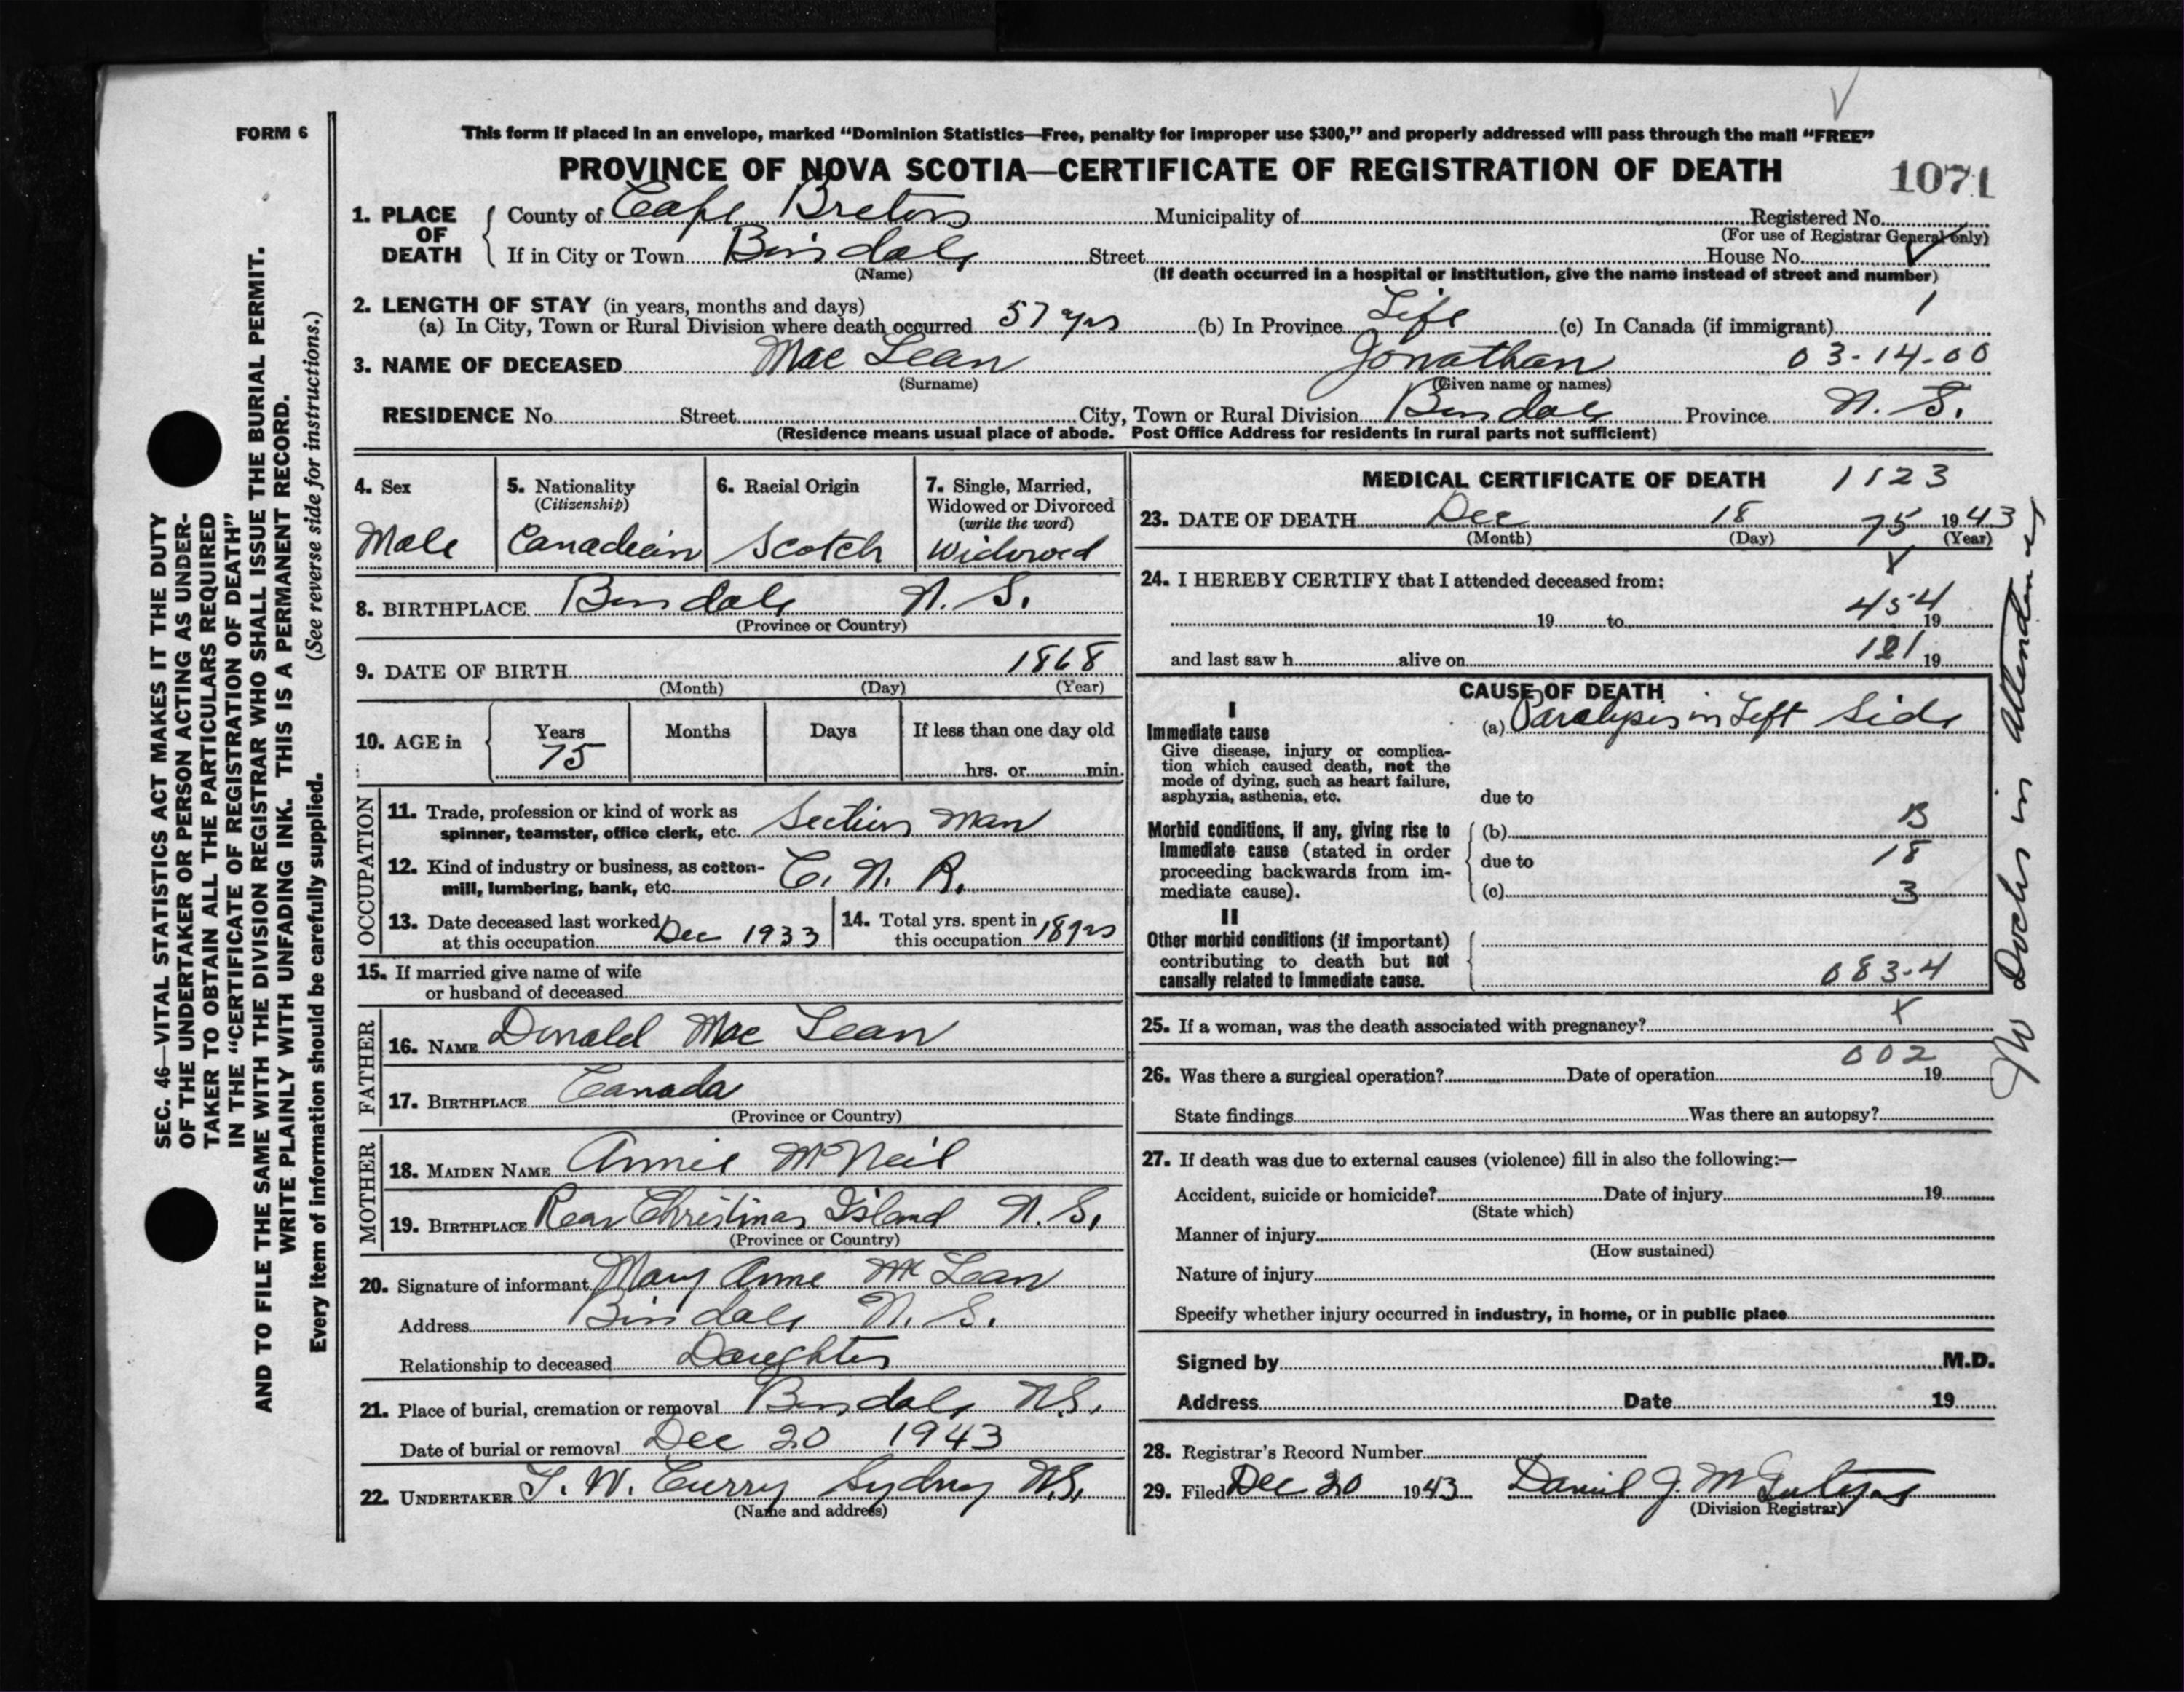 FORM 6
This form if placed in an envelope, marked "Dominion Statistics—Free, penalty for improper use $300," and properly addressed will pass through the mail "FREE"
PROVINCE OF NOVA SCOTIA—CERTIFICATE OF REGISTRATION OF DEATH
1071
1. PLACE OF DEATH County of Cape Breton Municipality of Registered No.
(For use of Registrar General only)
If in City or Town Street House No.
(Name) (If death occurred in a hospital or institution, give the name instead of street and number)
2. LENGTH OF STAY (in years, months and days)
(a) In City, Town or Rural Division where death occurred 57 yrs (b) In Province Life (c) In Canada (if immigrant) 1
3. NAME OF DECEASED Mac Lean Jonathan 03-14-00
(Surname) (Given name or names)
RESIDENCE No. Street City, Town or Rural Division Province N. S.
(Residence means usual place of abode. Post Office Address for residents in rural parts not sufficient)
4. Sex 5. Nationality (Citizenship) 6. Racial Origin 7. Single, Married, Widowed or Divorced (write the word)
Male Canadian Scotch Widowed
8. BIRTHPLACE N. S.
(Province or Country)
9. DATE OF BIRTH 1868
(Month) (Day) (Year)
10. AGE in Years Months Days If less than one day old
75 hrs. or min.
OCCUPATION
11. Trade, profession or kind of work as
spinner, teamster, office clerk, etc. Section Man
12. Kind of industry or business, as cotton-
mill, lumbering, bank, etc. C. N. R.
13. Date deceased last worked at this occupation Dec 1933
14. Total yrs. spent in this occupation 18 yrs
15. If married give name of wife
or husband of deceased
FATHER
16. NAME Donald Mac Lean
17. BIRTHPLACE Canada
(Province or Country)
MOTHER
18. MAIDEN NAME Annie McNeil
19. BIRTHPLACE Rear Christmas Island N. S.
(Province or Country)
20. Signature of informant Mary Anne Mc Lean
Address N. S.
Relationship to deceased Daughter
21. Place of burial, cremation or removal N.S.
Date of burial or removal Dec 20 1943
22. UNDERTAKER T. W. Curry Sydney N.S.
(Name and address)
MEDICAL CERTIFICATE OF DEATH 1123
23. DATE OF DEATH Dec 18 75 1943
(Month) (Day) (Year)
24. I HEREBY CERTIFY that I attended deceased from:
454
19 to 19
and last saw h alive on 19
CAUSE OF DEATH
I
Immediate cause (a) Paralysis in Left Side
Give disease, injury or complica-
tion which caused death, not the
mode of dying, such as heart failure,
asphyxia, asthenia, etc. due to
Morbid conditions, if any, giving rise to (b) B
immediate cause (stated in order due to 18
proceeding backwards from im-
mediate cause). (c) 3
II
Other morbid conditions (if important)
contributing to death but not
causally related to immediate cause. 083-4
25. If a woman, was the death associated with pregnancy?
002
26. Was there a surgical operation? Date of operation 19
State findings Was there an autopsy?
27. If death was due to external causes (violence) fill in also the following:—
Accident, suicide or homicide? Date of injury 19
(State which)
Manner of injury
(How sustained)
Nature of injury
Specify whether injury occurred in industry, in home, or in public place
Signed by M.D.
Address Date 19
28. Registrar's Record Number
29. Filed Dec 20 1943 Daniel J.
(Division Registrar)
No Doctor in Attendance
SEC. 46—VITAL STATISTICS ACT MAKES IT THE DUTY
OF THE UNDERTAKER OR PERSON ACTING AS UNDER-
TAKER TO OBTAIN ALL THE PARTICULARS REQUIRED
IN THE "CERTIFICATE OF REGISTRATION OF DEATH"
AND TO FILE THE SAME WITH THE DIVISION REGISTRAR WHO SHALL ISSUE THE BURIAL PERMIT.
WRITE PLAINLY WITH UNFADING INK. THIS IS A PERMANENT RECORD.
Every item of information should be carefully supplied. (See reverse side for instructions.)